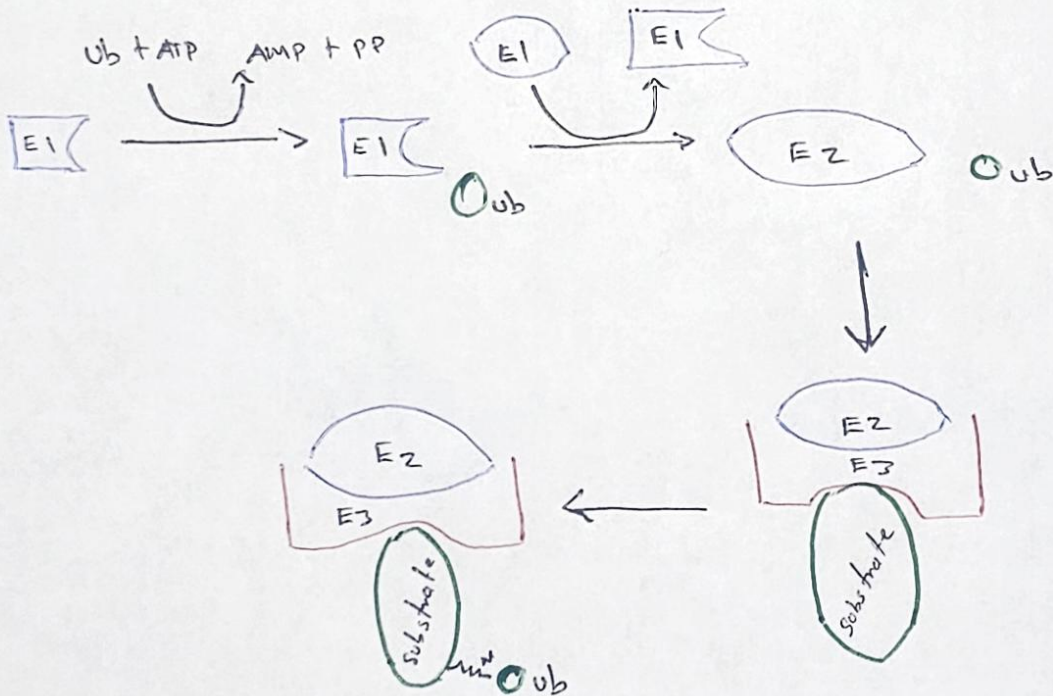 Ub + ATP
AMP + PP
E1
E1
E1
E1
Ub
E2
Ub
E2
E3
Substrate
E2
E3
Substrate
Ub